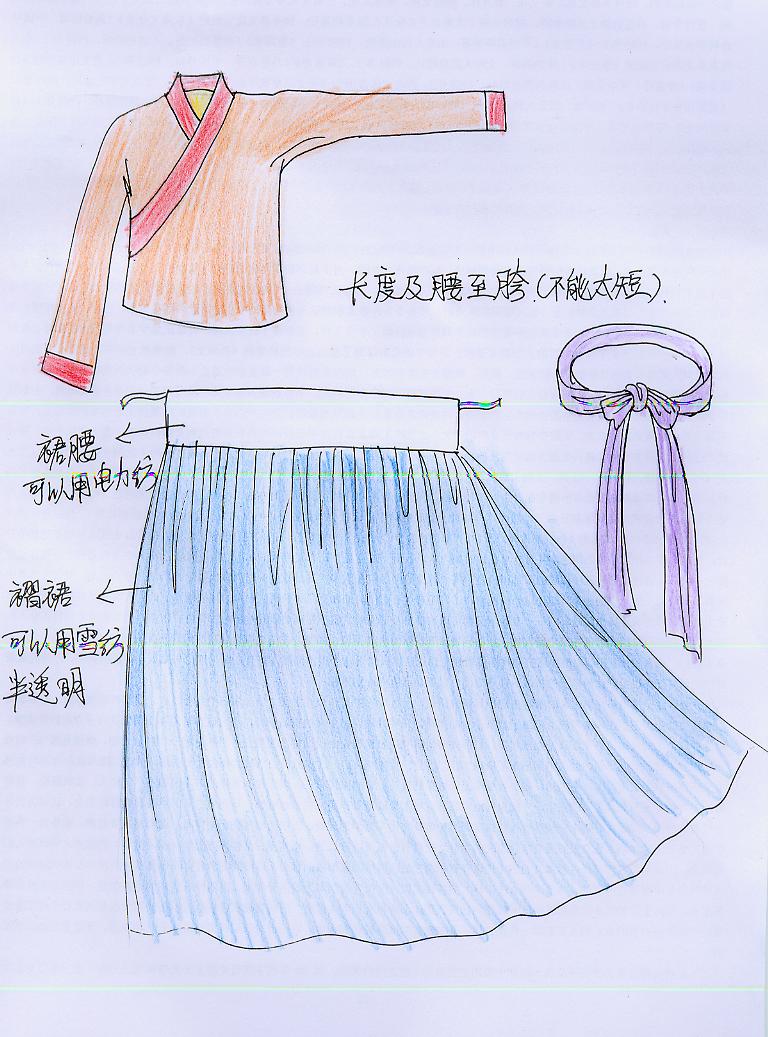 长度及腰至胯(不能太短).
裙腰
可以用电力纺
褶裙
可以用雪纺
半透明